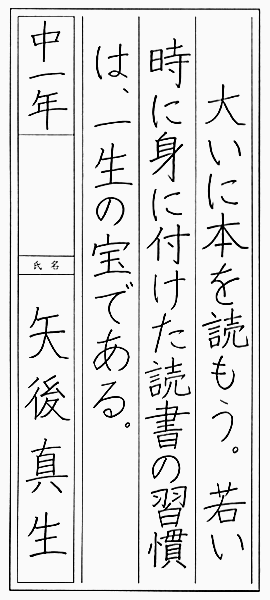 大いに本を読もう。若い
時に身に付けた読書の習慣
は、一生の宝である。
中一年
氏名
矢後真生